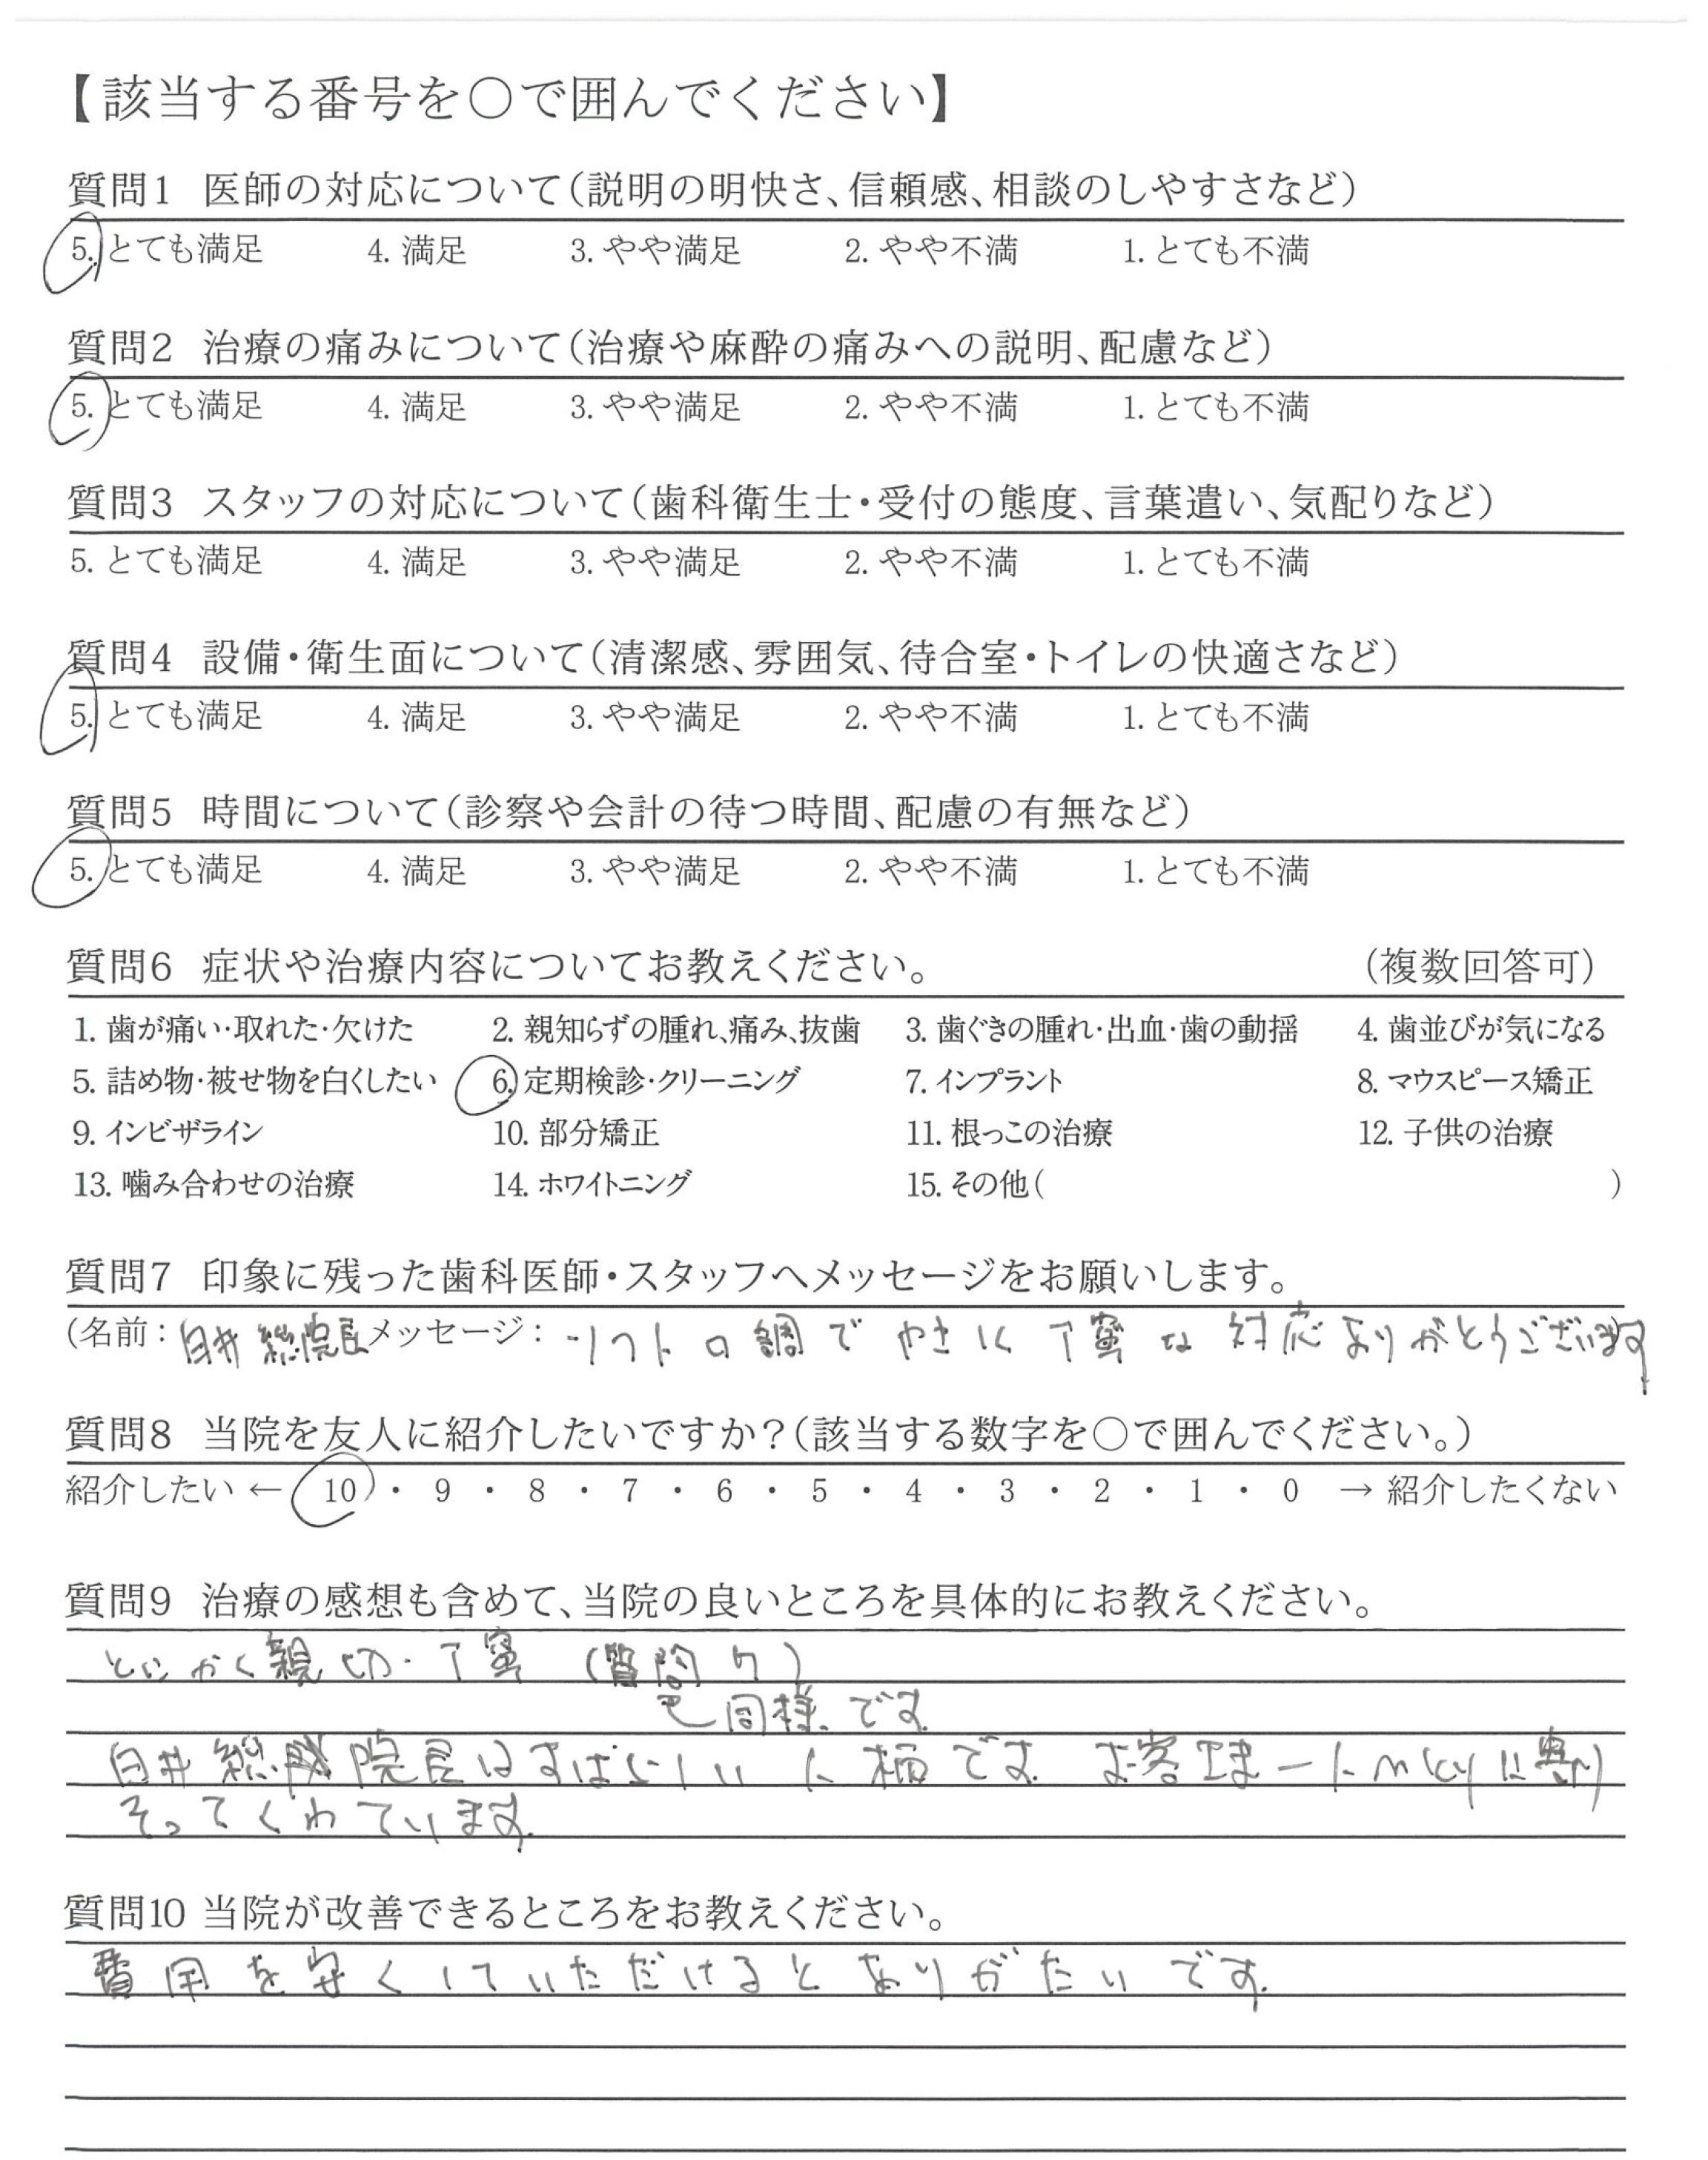 【該当する番号を○で囲んでください】
質問1 医師の対応について(説明の明快さ、信頼感、相談のしやすさなど)
5. とても満足 4. 満足 3. やや満足 2. やや不満 1. とても不満
質問2 治療の痛みについて(治療や麻酔の痛みへの説明、配慮など)
5. とても満足 4. 満足 3. やや満足 2. やや不満 1. とても不満
質問3 スタッフの対応について(歯科衛生士・受付の態度、言葉遣い、気配りなど)
5. とても満足 4. 満足 3. やや満足 2. やや不満 1. とても不満
質問4 設備・衛生面について(清潔感、雰囲気、待合室・トイレの快適さなど)
5. とても満足 4. 満足 3. やや満足 2. やや不満 1. とても不満
質問5 時間について(診察や会計の待つ時間、配慮の有無など)
5. とても満足 4. 満足 3. やや満足 2. やや不満 1. とても不満
質問6 症状や治療内容についてお教えください。 (複数回答可)
1. 歯が痛い・取れた・欠けた 2. 親知らずの腫れ、痛み、抜歯 3. 歯ぐきの腫れ・出血・歯の動揺 4. 歯並びが気になる
5. 詰め物・被せ物を白くしたい 6. 定期検診・クリーニング 7. インプラント 8. マウスピース矯正
9. インビザライン 10. 部分矯正 11. 根っこの治療 12. 子供の治療
13. 噛み合わせの治療 14. ホワイトニング 15. その他( )
質問7 印象に残った歯科医師・スタッフへメッセージをお願いします。
(名前: 白井 総院長 メッセージ: ソフト口調で やさしく 丁寧な 対応ありがとうございます
質問8 当院を友人に紹介したいですか?(該当する数字を○で囲んでください。)
紹介したい ← 10 ・ 9 ・ 8 ・ 7 ・ 6 ・ 5 ・ 4 ・ 3 ・ 2 ・ 1 ・ 0 → 紹介したくない
質問9 治療の感想も含めて、当院の良いところを具体的にお教えください。
とにかく親切・丁寧 (質問7)
と同様です
白井 総院長はすばらしい人柄です。お客さま一人
そってくれています。
質問10 当院が改善できるところをお教えください。
費用を安くしていただけるとありがたいです。